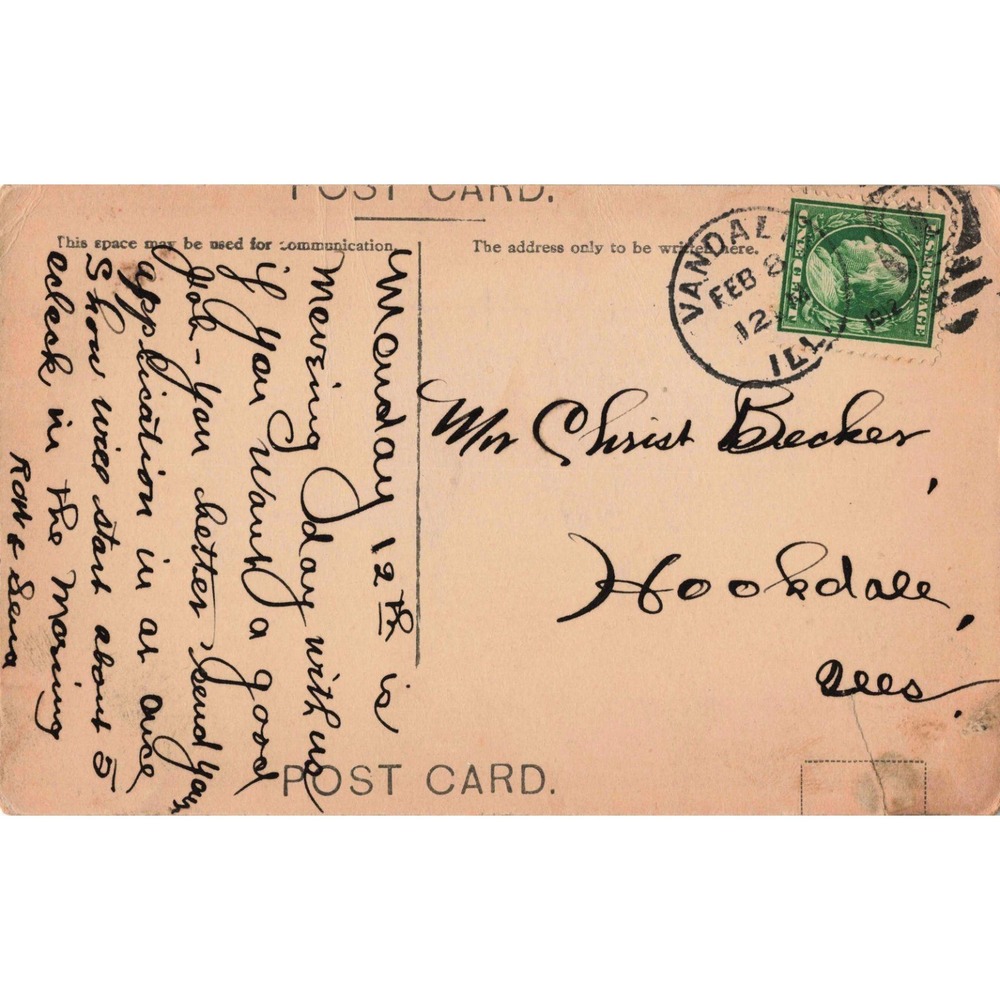 POST CARD.
This space may be used for communication.
The address only to be written here.
VANDALIA
FEB 8
12 M
ILL.
1912
U.S. POSTAGE
Monday 12th is
Moveing day with us
if you want a good
Job - you better send your
application in at once
Show will start about 5
oclock in the Morning
Rob & Sena
Mr Christ Becker,
Hookdale,
Ills.
POST CARD.